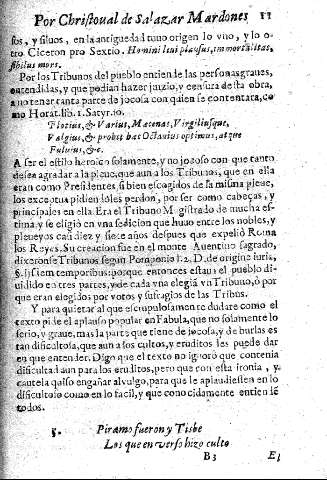 Por Christoual de Salazar Mardones 11
sos, y siluos, en la antiguedad tuuo origen lo vno, y lo o-
tro Ciceron pro Sextio. Homini leui plausus, immortalitas,
sibilus mors.
Por los Tribunos del pueblo entiende las personas graues,
entendidas, y que podian hazer juyzio, y censura desta obra,
a no tener tanta parte de jocosa con quien se contentara, co-
mo Horat. lib. 1. Satyr. 10.
Plotius, & Varius, Mæcenas, Virgiliusque,
Valgius, & probet hæc Octauius optimus, atque
Fuscus, &c.
A ser el estilo heroico solamente, y no jocoso con que tanto
desea agradar a la pleue, que aun a los Tribunos, que en ella
eran como Presidentes, si bien escogidos de la misma pleue,
los exceptua pidiendoles perdon, por ser como cabeças, y
principales en ella. Era el Tribuno Magistrado de mucha es-
tima, y se eligiò en vna sedicion que huuo entre los nobles, y
pleueyos casi diez y siete años despues que expeliò Roma
los Reyes. Su creacion fue en el monte Auentino sagrado,
dixeronse Tribunos segun Pomponio l. 2. D. de origine iuris,
§. Iisdem temporibus: porque entonces estaua el pueblo di-
uidido en tres partes, y de cada vna elegia vn Tribuno, ò por
que eran elegidos por votos y sufragios de las Tribus.
Y para quietar al que escrupulosamente dudare como el
texto pide el aplauso popular en Fabula, que no solamente lo
serio, y graue, mas la parte que tiene de jocosa, y de burlas es
tan dificultosa, que aun a los cultos, y eruditos les puede dar
en que entender. Digo que el texto no ignorò que contenia
dificultad aun para los eruditos, pero que con esta ironia, y
cautela quiso engañar al vulgo, para que le aplaudiessen en lo
dificultoso como en lo facil, y que conocidamente entiende
todos.
5. Piramo fueron y Tisbe
Los que en verso hizo culto
B 3 El